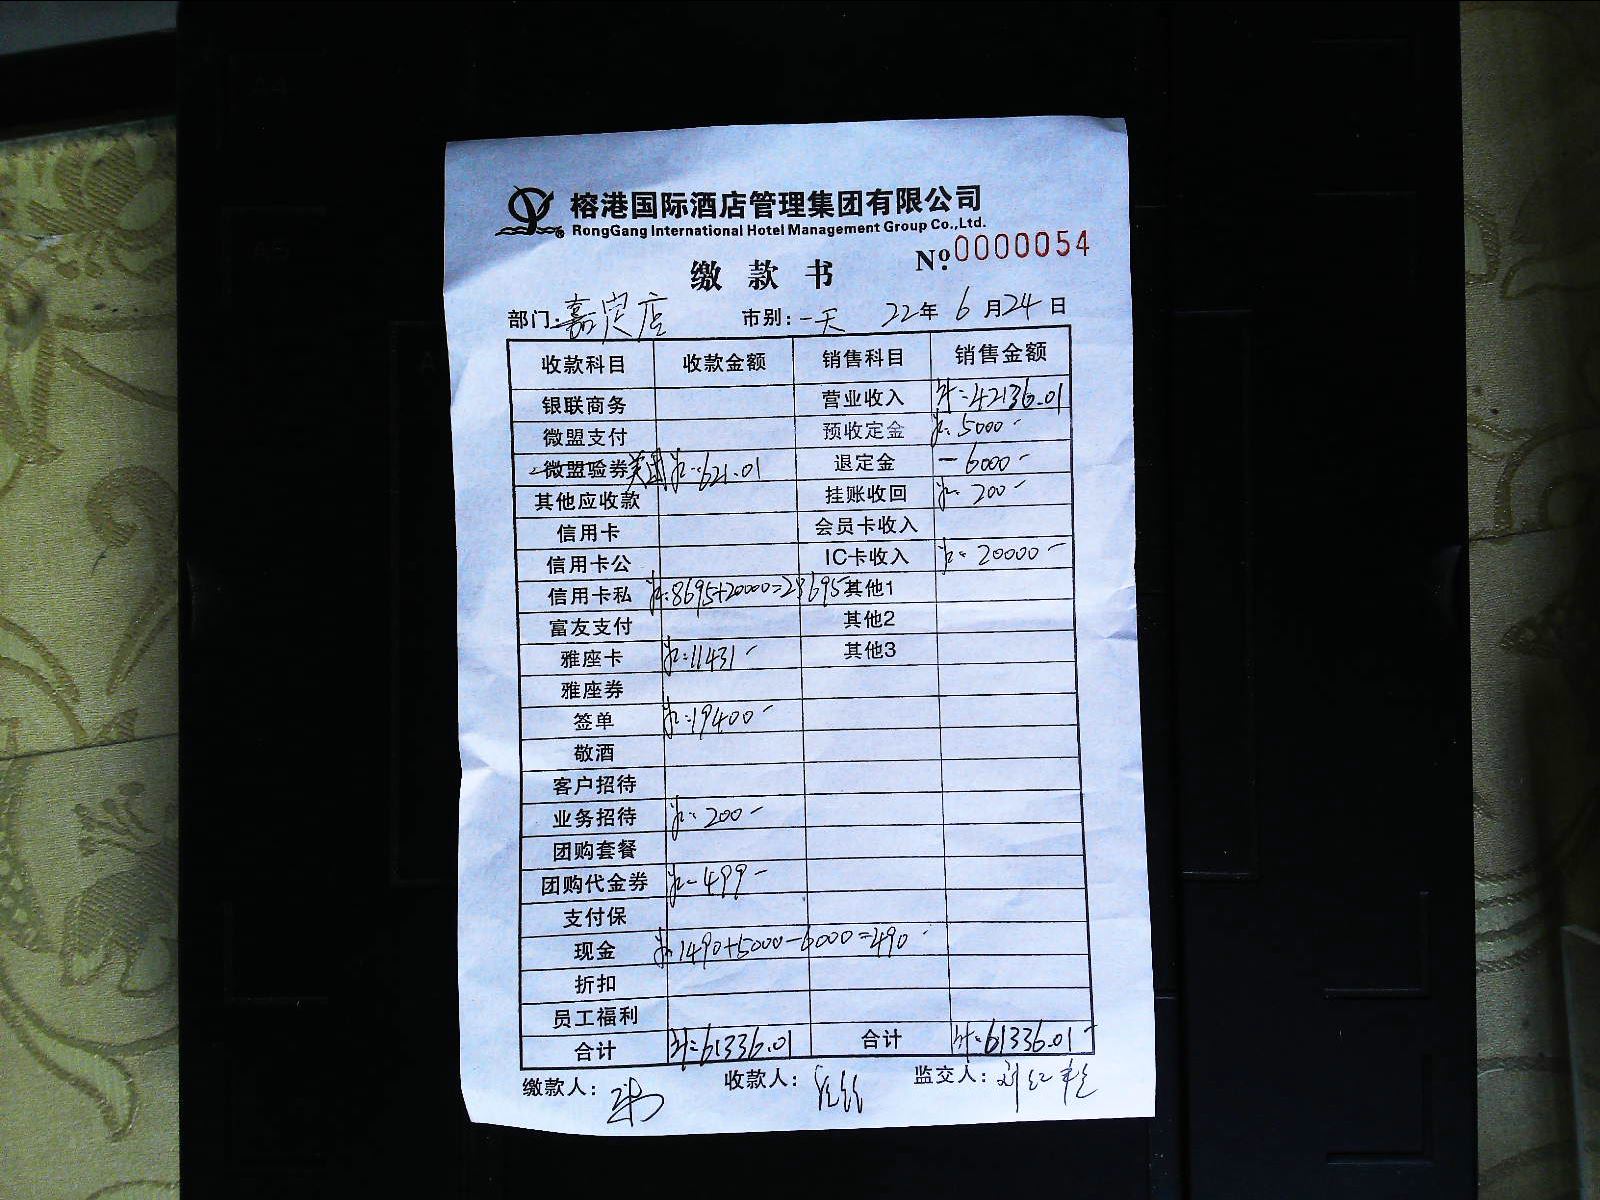 榕港国际酒店管理集团有限公司
RongGang International Hotel Management Group Co.,Ltd.
缴款书 Nº.0000054
部门:嘉定店 市别:一天 22年6月24日
收款科目 收款金额 销售科目 销售金额
银联商务 营业收入 计:42136.01
微盟支付 预收定金 计:5000-
微盟验券 美团 计:621.01 退定金 -6000-
其他应收款 挂账收回 计:200-
信用卡 会员卡收入
信用卡公 IC卡收入 计:20000-
信用卡私 计:8695+20000=28695 其他1
富友支付 其他2
雅座卡 计:11431- 其他3
雅座券
签单 计:19400-
敬酒
客户招待
业务招待 计:200-
团购套餐
团购代金券 计:499-
支付保
现金 计:1490+5000-6000=490-
折扣
员工福利
合计 计:61336.01 合计 计:61336.01-
缴款人: 收款人: 监交人: